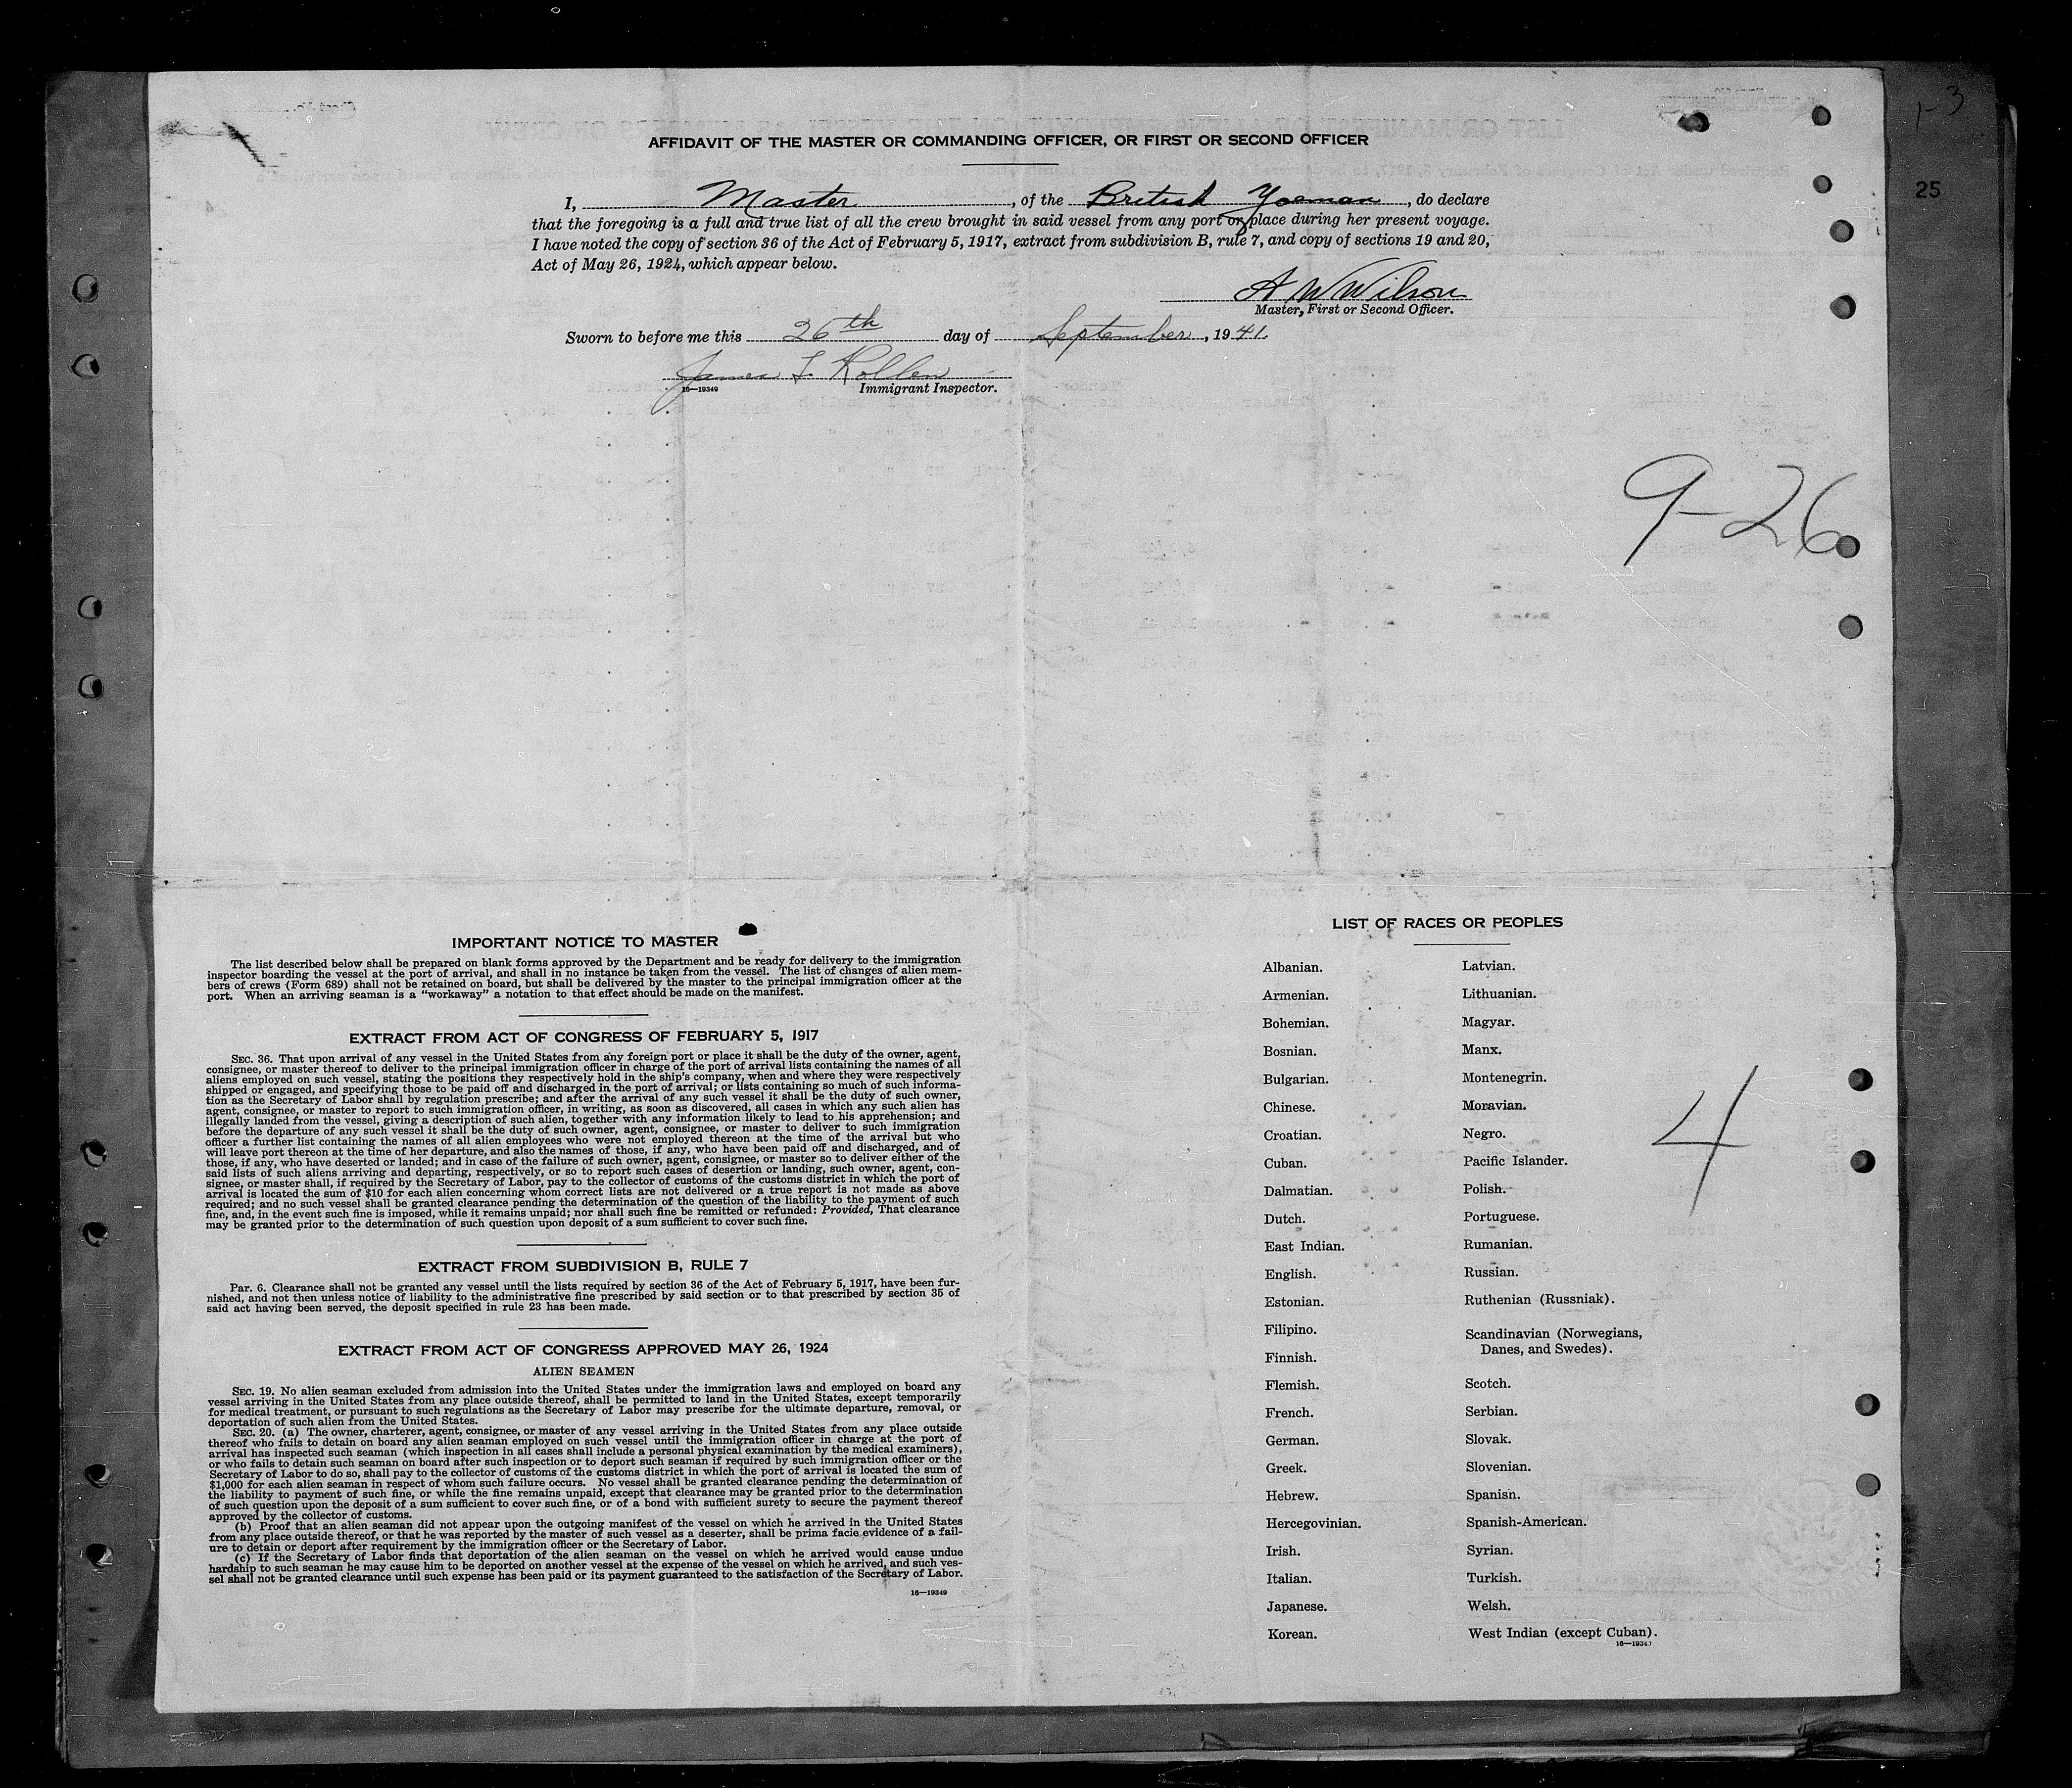 1-3
25
AFFIDAVIT OF THE MASTER OR COMMANDING OFFICER, OR FIRST OR SECOND OFFICER
I, Master, of the British Yoeman, do declare
that the foregoing is a full and true list of all the crew brought in said vessel from any port or place during her present voyage.
I have noted the copy of section 36 of the Act of February 5, 1917, extract from subdivision B, rule 7, and copy of sections 19 and 20,
Act of May 26, 1924, which appear below.
A W Wilson
Master, First or Second Officer.
Sworn to before me this 26th day of September, 1941.
James
16—19349 Immigrant Inspector.
9-26
IMPORTANT NOTICE TO MASTER
The list described below shall be prepared on blank forms approved by the Department and be ready for delivery to the immigration
inspector boarding the vessel at the port of arrival, and shall in no instance be taken from the vessel. The list of changes of alien mem-
bers of crews (Form 689) shall not be retained on board, but shall be delivered by the master to the principal immigration officer at the
port. When an arriving seaman is a “workaway” a notation to that effect should be made on the manifest.
EXTRACT FROM ACT OF CONGRESS OF FEBRUARY 5, 1917
SEC. 36. That upon arrival of any vessel in the United States from any foreign port or place it shall be the duty of the owner, agent,
consignee, or master thereof to deliver to the principal immigration officer in charge of the port of arrival lists containing the names of all
aliens employed on such vessel, stating the positions they respectively hold in the ship's company, when and where they were respectively
shipped or engaged, and specifying those to be paid off and discharged in the port of arrival; or lists containing so much of such informa-
tion as the Secretary of Labor shall by regulation prescribe; and after the arrival of any such vessel it shall be the duty of such owner,
agent, consignee, or master to report to such immigration officer, in writing, as soon as discovered, all cases in which any such alien has
illegally landed from the vessel, giving a description of such alien, together with any information likely to lead to his apprehension; and
before the departure of any such vessel it shall be the duty of such owner, agent, consignee, or master to deliver to such immigration
officer a further list containing the names of all alien employees who were not employed thereon at the time of the arrival but who
will leave port thereon at the time of her departure, and also the names of those, if any, who have been paid off and discharged, and of
those, if any, who have deserted or landed; and in case of the failure of such owner, agent, consignee, or master so to deliver either of the
said lists of such aliens arriving and departing, respectively, or so to report such cases of desertion or landing, such owner, agent, con-
signee, or master shall, if required by the Secretary of Labor, pay to the collector of customs of the customs district in which the port of
arrival is located the sum of $10 for each alien concerning whom correct lists are not delivered or a true report is not made as above
required; and no such vessel shall be granted clearance pending the determination of the question of the liability to the payment of such
fine, and, in the event such fine is imposed, while it remains unpaid; nor shall such fine be remitted or refunded: Provided, That clearance
may be granted prior to the determination of such question upon deposit of a sum sufficient to cover such fine.
EXTRACT FROM SUBDIVISION B, RULE 7
Par. 6. Clearance shall not be granted any vessel until the lists required by section 36 of the Act of February 5, 1917, have been fur-
nished, and not then unless notice of liability to the administrative fine prescribed by said section or to that prescribed by section 35 of
said act having been served, the deposit specified in rule 23 has been made.
EXTRACT FROM ACT OF CONGRESS APPROVED MAY 26, 1924
ALIEN SEAMEN
SEC. 19. No alien seaman excluded from admission into the United States under the immigration laws and employed on board any
vessel arriving in the United States from any place outside thereof, shall be permitted to land in the United States, except temporarily
for medical treatment, or pursuant to such regulations as the Secretary of Labor may prescribe for the ultimate departure, removal, or
deportation of such alien from the United States.
SEC. 20. (a) The owner, charterer, agent, consignee, or master of any vessel arriving in the United States from any place outside
thereof who fails to detain on board any alien seaman employed on such vessel until the immigration officer in charge at the port of
arrival has inspected such seaman (which inspection in all cases shall include a personal physical examination by the medical examiners),
or who fails to detain such seaman on board after such inspection or to deport such seaman if required by such immigration officer or the
Secretary of Labor to do so, shall pay to the collector of customs of the customs district in which the port of arrival is located the sum of
$1,000 for each alien seaman in respect of whom such failure occurs. No vessel shall be granted clearance pending the determination of
the liability to payment of such fine, or while the fine remains unpaid, except that clearance may be granted prior to the determination
of such question upon the deposit of a sum sufficient to cover such fine, or of a bond with sufficient surety to secure the payment thereof
approved by the collector of customs.
(b) Proof that an alien seaman did not appear upon the outgoing manifest of the vessel on which he arrived in the United States
from any place outside thereof, or that he was reported by the master of such vessel as a deserter, shall be prima facie evidence of a fail-
ure to detain or deport after requirement by the immigration officer or the Secretary of Labor.
(c) If the Secretary of Labor finds that deportation of the alien seaman on the vessel on which he arrived would cause undue
hardship to such seaman he may cause him to be deported on another vessel at the expense of the vessel on which he arrived, and such ves-
sel shall not be granted clearance until such expense has been paid or its payment guaranteed to the satisfaction of the Secretary of Labor.
16—19349
LIST OF RACES OR PEOPLES
Albanian.
Armenian.
Bohemian.
Bosnian.
Bulgarian.
Chinese.
Croatian.
Cuban.
Dalmatian.
Dutch.
East Indian.
English.
Estonian.
Filipino.
Finnish.
Flemish.
French.
German.
Greek.
Hebrew.
Hercegovinian.
Irish.
Italian.
Japanese.
Korean.
Latvian.
Lithuanian.
Magyar.
Manx.
Montenegrin.
Moravian.
Negro.
Pacific Islander.
Polish.
Portuguese.
Rumanian.
Russian.
Ruthenian (Russniak).
Scandinavian (Norwegians,
Danes, and Swedes).
Scotch.
Serbian.
Slovak.
Slovenian.
Spanish.
Spanish-American.
Syrian.
Turkish.
Welsh.
West Indian (except Cuban).
16—19349
4